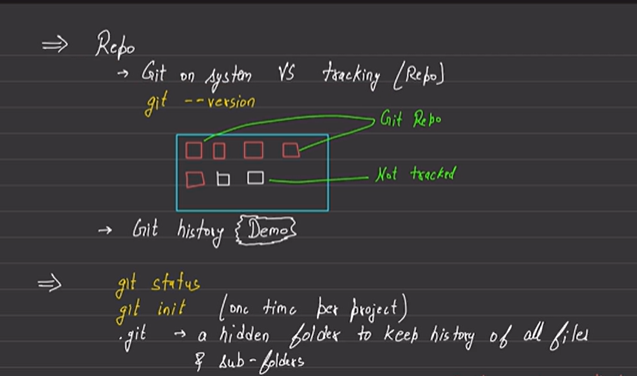 ⇒ Repo
→ Git on system VS tracking [Repo]
git --version
Git Repo
Not tracked
→ Git history {Demo}
⇒ git status
git init (one time per project)
.git → a hidden folder to keep history of all files
& sub-folders